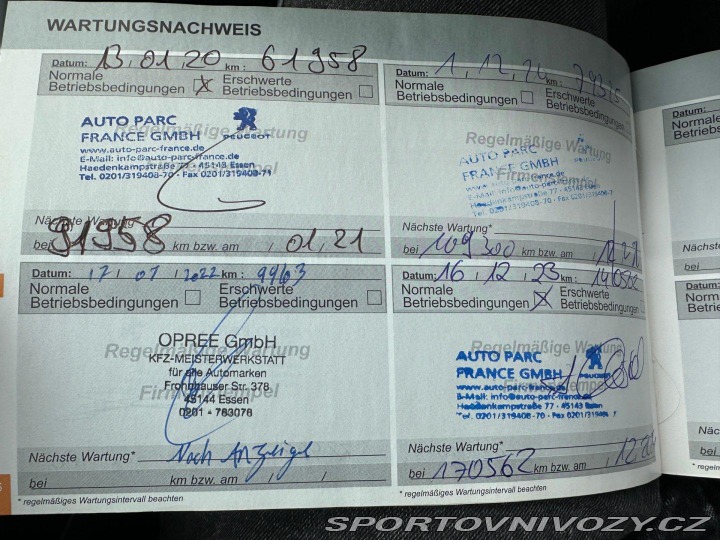 WARTUNGSNACHWEIS
Datum: 13.01.20 km: 61958
Normale Betriebsbedingungen
Erschwerte Betriebsbedingungen
Regelmäßige Wartung
AUTO PARC
FRANCE GMBH PEUGEOT
www.auto-parc-france.de
E-Mail: info@auto-parc-france.de
Haedenkampstraße 77 · 45143 Essen
Tel. 0201/319408-70 · Fax 0201/319408-71
Nächste Wartung*
bei 91958 km bzw. am 01,21
Datum: km:
Normale Betriebsbedingungen
Erschwerte Betriebsbedingungen
Regelmäßige Wartung
Firmenstempel
AUTO PARC
FRANCE GMBH
Tel. 0201/319408-70 · Fax 0201/319408-71
Nächste Wartung*
bei 109300 km bzw. am
Datum: 17/01/2022 km:
Normale Betriebsbedingungen
Erschwerte Betriebsbedingungen
Regelmäßige Wartung
Firmenstempel
OPREE GmbH
KFZ-MEISTERWERKSTATT
für alle Automarken
Frohnhauser Str. 378
45144 Essen
0201 - 763076
Nächste Wartung* Nach Anzeige
bei km bzw. am
* regelmäßiges Wartungsintervall beachten
Datum: 16,12,23 km: 140562
Normale Betriebsbedingungen
Erschwerte Betriebsbedingungen
Regelmäßige Wartung
Firmenstempel
AUTO PARC
FRANCE GMBH PEUGEOT
www.auto-parc-france.de
E-Mail: info@auto-parc-france.de
Haedenkampstraße 77 · 45143 Essen
Tel. 0201/319408-70 · Fax 0201/319408-71
Nächste Wartung*
bei 170562 km bzw. am
* regelmäßiges Wartungsintervall beachten
Datum:
Normale
Nächste
bei
Datum:
Normale
Nächste
bei
SPORTOVNIVOZY.CZ